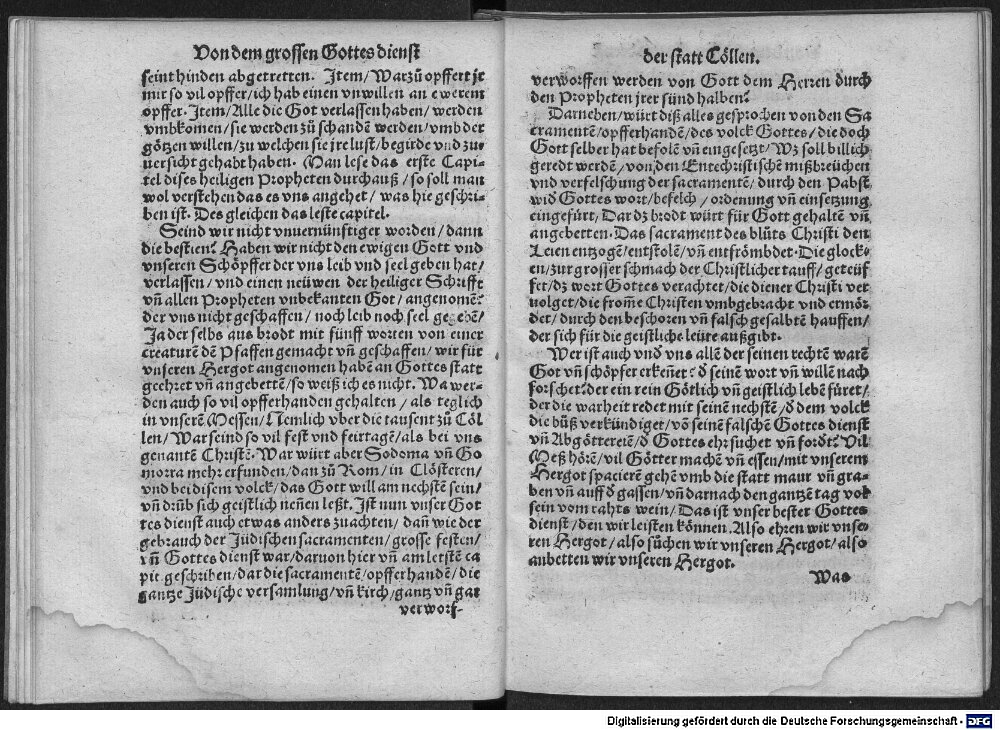 Von dem grossen Gottes dienst
seint hinden abgetretten. Item/ Warzů opffert jr
mir so vil opffer/ ich hab einen vnwillen an ewerem
opffer. Item/ Alle die Got verlassen haben/ werden
vmbkomen/ sie werden zů schanden werden/ vmb der
götzen willen/ zu welchen sie jre lust/ begirde vnd zuuersicht
uersicht gehabt haben. Man lese das erste Capi-
tel dises heiligen Propheten durchauß/ so soll man
wol verstehen das es vns angehet/ was hie geschri-
ben ist. Des gleichen das leste capitel.
Seind wir nicht vnuernünstiger worden/ dann
die bestien? Haben wir nicht den ewigen Gott vnd
vnseren Schöpffer der vns leib vnd seel geben hat/
verlassen/ vnd einen neüwen der heiliger Schrifft
vñ allen Propheten vnbekanten Got/ angenomẽ?
der vns nicht geschaffen/ noch leib noch seel gegebẽ/
Ja der selbs aus brodt mit fünff worten von einer
creaturen dẽ Pfaffen gemacht vñ geschaffen/ wir für
vnseren Hergot angenomen habẽ an Gottes statt
geehret vñ angebettẽ/ so weiß ich es nicht. Wa wer-
den auch so vil opfferhanden gehalten/ als teglich
in vnserẽ Messen/ Nemlich vber die tausent zů Cöl
len/ War seind so vil fest vnd feirtagẽ/ als bei vns
genantẽ Christẽ. War würt aber Sodoma vñ Go
morra mehr erfunden/ dan zů Rom/ in Clösteren/
vnd bei disem volck/ das Gott will am nechstẽ sein/
vñ drůb sich geistlich neñen leßt. Ist nun vnser Got
tes dienst auch etwas anders zuachten/ dañ wie der
gebrauch der Jüdischen sacramenten/ grosse festen/
vñ Gottes dienst war/ daruon hier vñ am letstẽ ca
pit. geschriben/ dat die sacramentẽ/ opfferhandẽ/ die
gantze Jüdische versamlung/ vñ kirch/ gantz vñ gar
verworf-
der statt Cöllen.
verworffen werden von Gott dem Herren durch
den Propheten jrer sünd halben?
Darneben/ würt diß alles gesprochen von den Sa
cramentẽ/ opfferhandẽ/ des volck Gottes/ die doch
Gott selber hat befolẽ vñ eingesetzt/ Wz soll billich
geredt werdẽ/ von den Entechristischẽ mißbreüchen
vnd verfelschung der sacramentẽ/ durch den Pabst
wið Gottes wort/ befelch/ ordenung vñ einsetzung
eingefürt/ Dar dz brodt würt für Gott gehaltẽ vñ
angebetten. Das sacrament des blůts Christi den
Leien entzogẽ/ entstolẽ/ vñ entfrömbdet. Die glock-
en/ zur grosser schmach der Christlicher tauff/ geteüf
fet/ dz wort Gottes verachtet/ die diener Christi ver
uolget/ die from̃e Christen vmbgebracht vnd ermör
det/ durch den beschoren vñ falsch gesalbtẽ hauffen/
der sich für die geistliche leüte außgibt.
Wer ist auch vnð vns allẽ der seinen rechtẽ warẽ
Got vñ schöpfer erkeñet? ð seinẽ wort vñ willẽ nach
forschet? der ein rein Götlich vñ geistlich lebẽ fůret/
der die warheit redet mit seinẽ nechstẽ/ ð dem volck
die bůß verkündiget/ võ seinẽ falschẽ Gottes dienst
vñ Abgöttereiẽ/ ð Gottes ehr suchet vñ fordt? Vil
Meß hörẽ/ vil Götter machẽ vñ essen/ mit vnserem
Hergot spacierẽ gehẽ vmb die statt maur vñ gra-
ben vñ auff ð gassen/ vñ darnach den gantzẽ tag vol
sein vom rahts wein/ Das ist vnser bester Gottes
dienst/ den wir leisten können. Also ehren wir vnse-
ren Hergot/ also sůchen wir vnseren Hergot/ also
anbetten wir vnseren Hergot.
Was
Digitalisierung gefördert durch die Deutsche Forschungsgemeinschaft - DFG